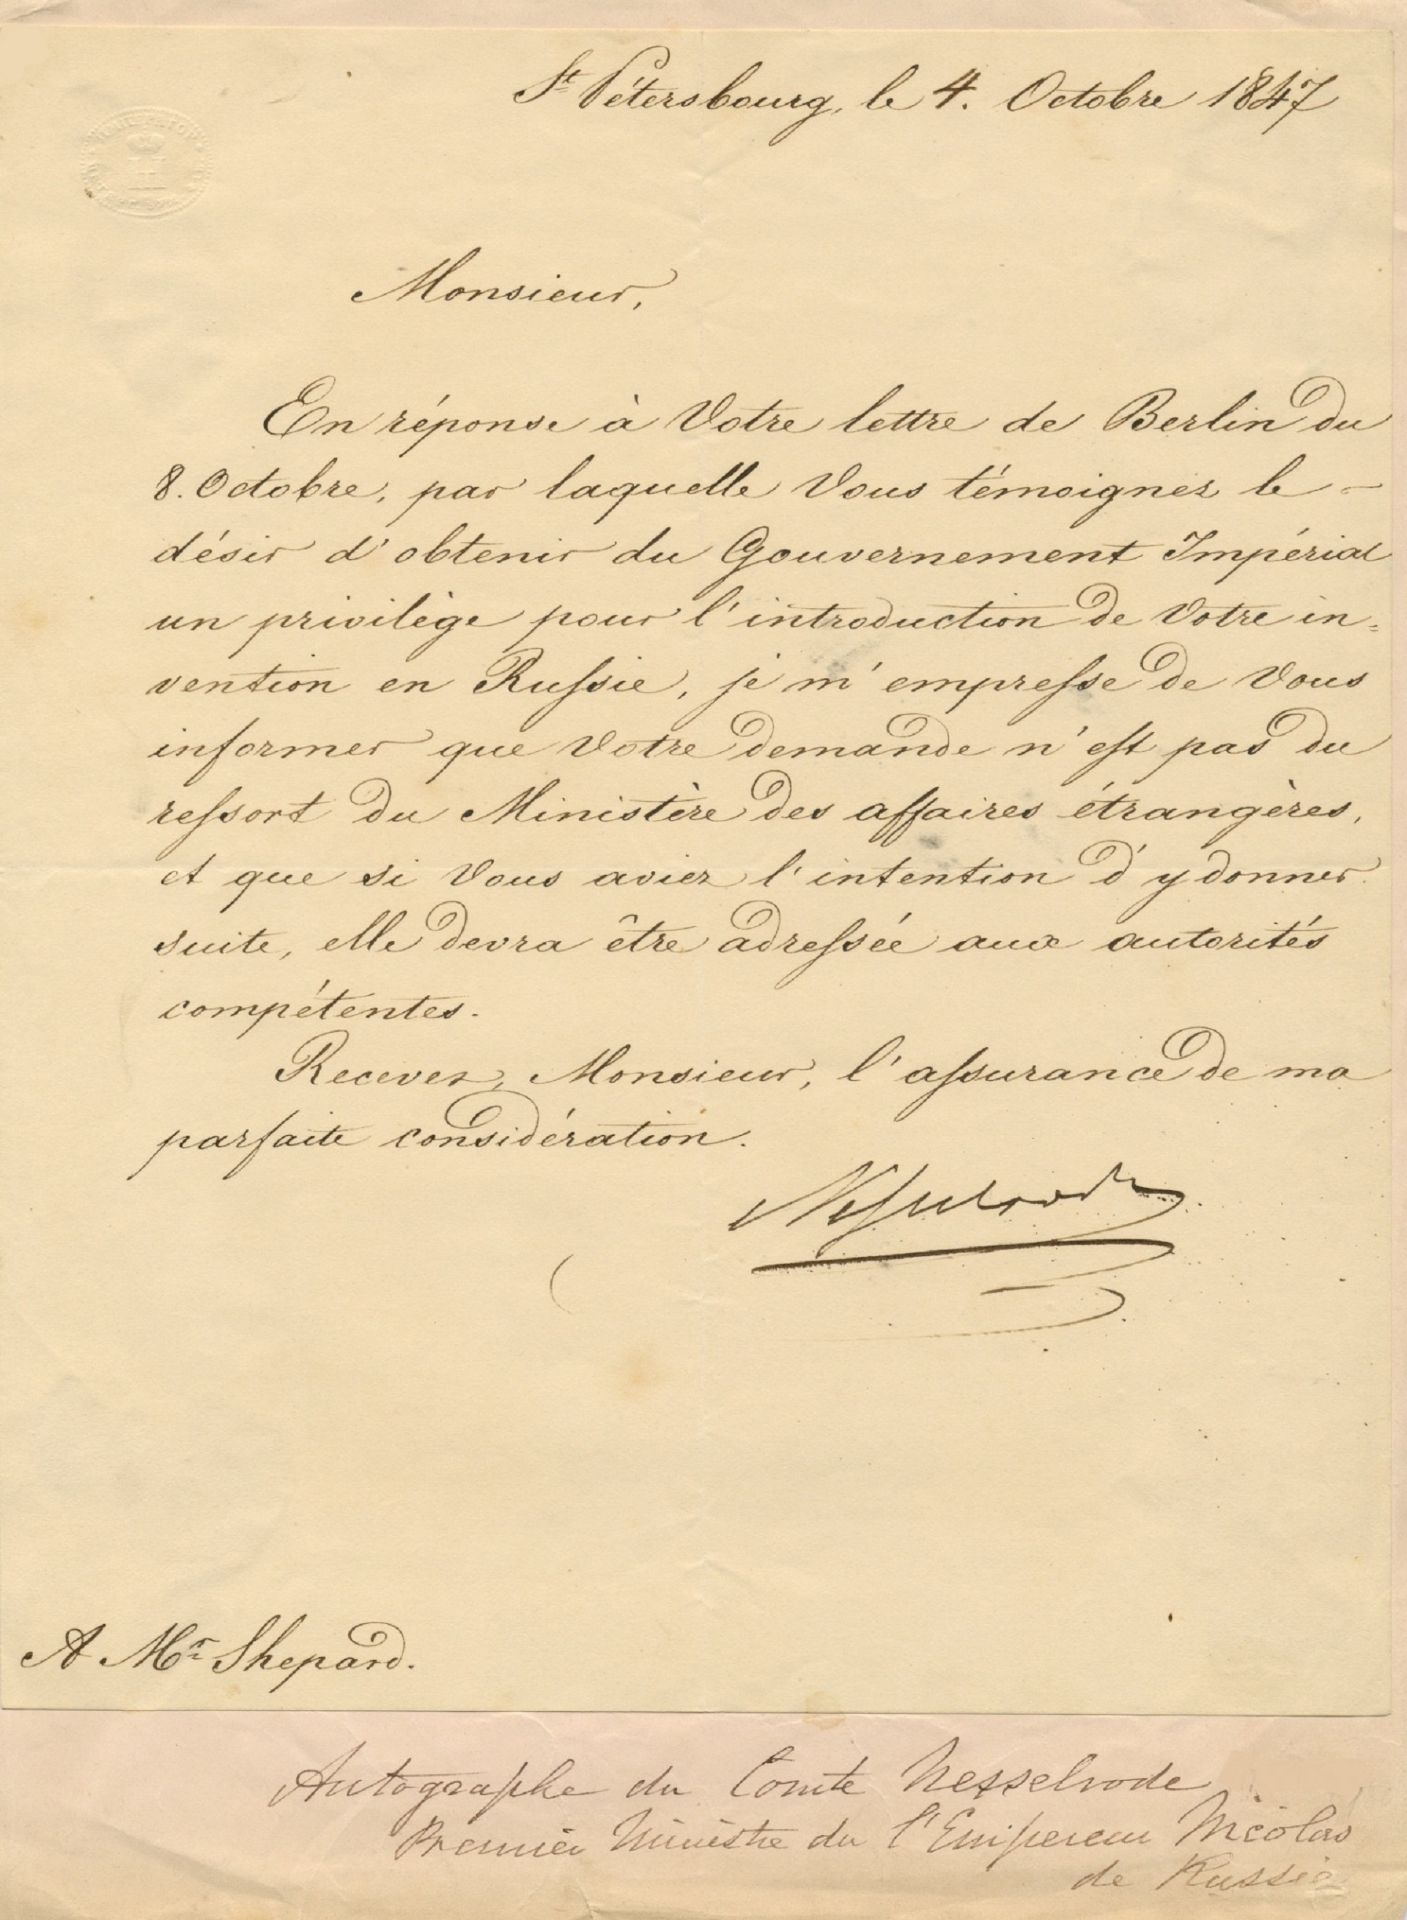 St Pétersbourg, le 4. Octobre 1847
Monsieur,
En réponse à Votre lettre de Berlin du
8. Octobre, par laquelle Vous témoignez le
désir d'obtenir du Gouvernement Impérial
un privilège pour l'introduction de Votre in=
vention en Russie, je m'empresse de Vous
informer que Votre demande n'est pas du
ressort du Ministère des affaires étrangères,
et que si Vous aviez l'intention d'y donner
suite, elle devra être adressée aux autorités
compétentes.
Recevez, Monsieur, l'assurance de ma
parfaite considération.
Nesselrode
A Mr Shepard.
Autographe du Comte Nesselrode
Premier Ministre du l'Empereur Nicolas
de Russie